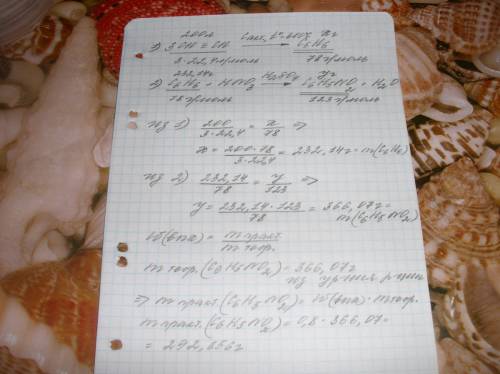 200л Cакт, t°, 600°C xг
1) 3CH≡CH → C6H6
3·22,4л/моль 78г/моль
232,14г yг
2) C6H6 + HNO3 H2SO4→ C6H5NO2 + H2O
78г/моль 123г/моль
из 1) 200/3·22,4 = x/78 ⇒
x = 200·78/3·22,4 = 232,14г = m(C6H6)
из 2) 232,14/78 = y/123 ⇒
y = 232,14·123/78 = 366,07г =
m(C6H5NO2)
W(вых) = m практ./m теор.
m теор.(C6H5NO2) = 366,07г
из ур-ния р-ции
⇒ m практ.(C6H5NO2) = W(вых)·m теор.
m практ.(C6H5NO2) = 0,8·366,07=
= 292,856г